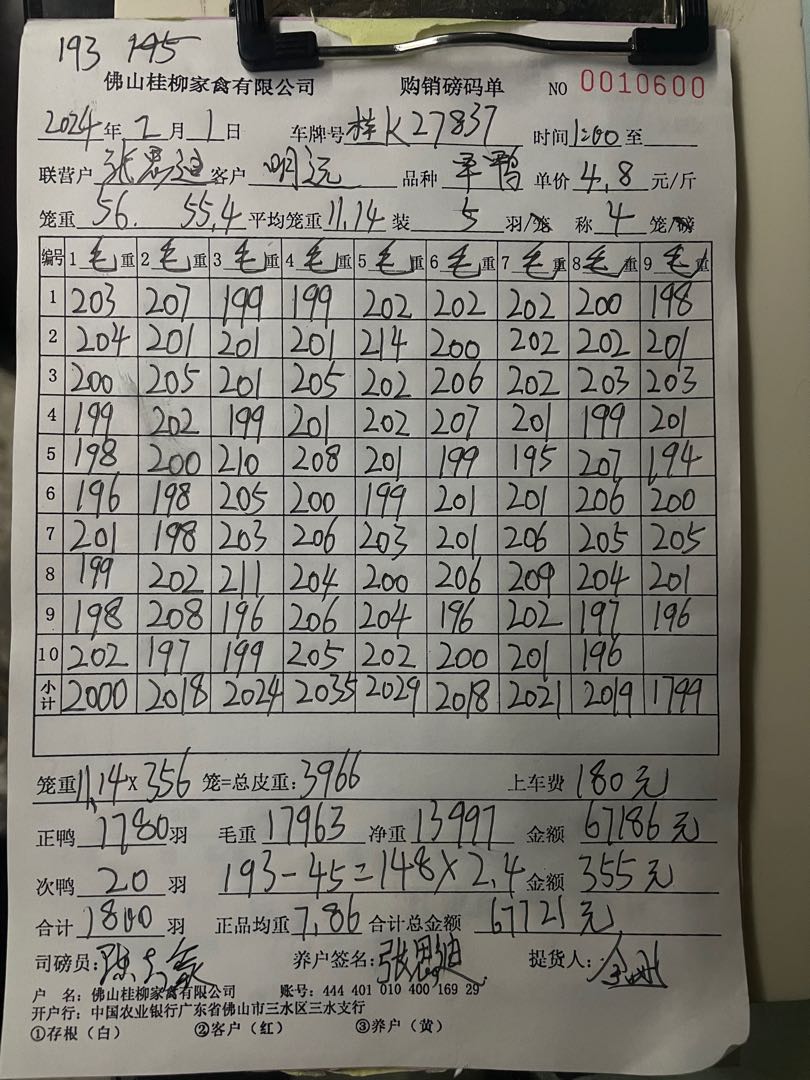 193 195
佛山桂柳家禽有限公司 购销磅码单 NO 0010600
2024年2月1日 车牌号 桂K27837 时间 1:00 至
联营户 张思迪 客户 明远 品种 平鸭 单价 4.8 元/斤
笼重 56. 55.4 平均笼重 11.14 装 5 羽/笼 称 4 笼/磅
编号 1 毛重 2 毛重 3 毛重 4 毛重 5 毛重 6 毛重 7 毛重 8 毛重 9 毛重
1 203 207 199 199 202 202 202 200 198
2 204 201 201 201 214 200 202 202 201
3 200 205 201 205 202 206 202 203 203
4 199 202 199 201 202 207 201 199 201
5 198 200 210 208 201 199 195 207 194
6 196 198 205 200 199 201 201 206 200
7 201 198 203 206 203 201 206 205 205
8 199 202 211 204 200 206 209 204 201
9 198 208 196 206 204 196 202 197 196
10 202 197 199 205 202 200 201 196
小计 2000 2018 2024 2035 2029 2018 2021 2019 1799
笼重 11.14 X 356 笼=总皮重: 3966 上车费 180元
正鸭 1780 羽 毛重 17963 净重 13997 金额 67186元
次鸭 20 羽 193-45=148X2.4 金额 355元
合计 1800 羽 正品均重 7.86 合计总金额 67721元
司磅员: 养户签名: 张思迪 提货人:
户 名: 佛山桂柳家禽有限公司 账号: 444 401 010 400 169 29
开户行: 中国农业银行广东省佛山市三水区三水支行
①存根（白） ②客户（红） ③养户（黄）